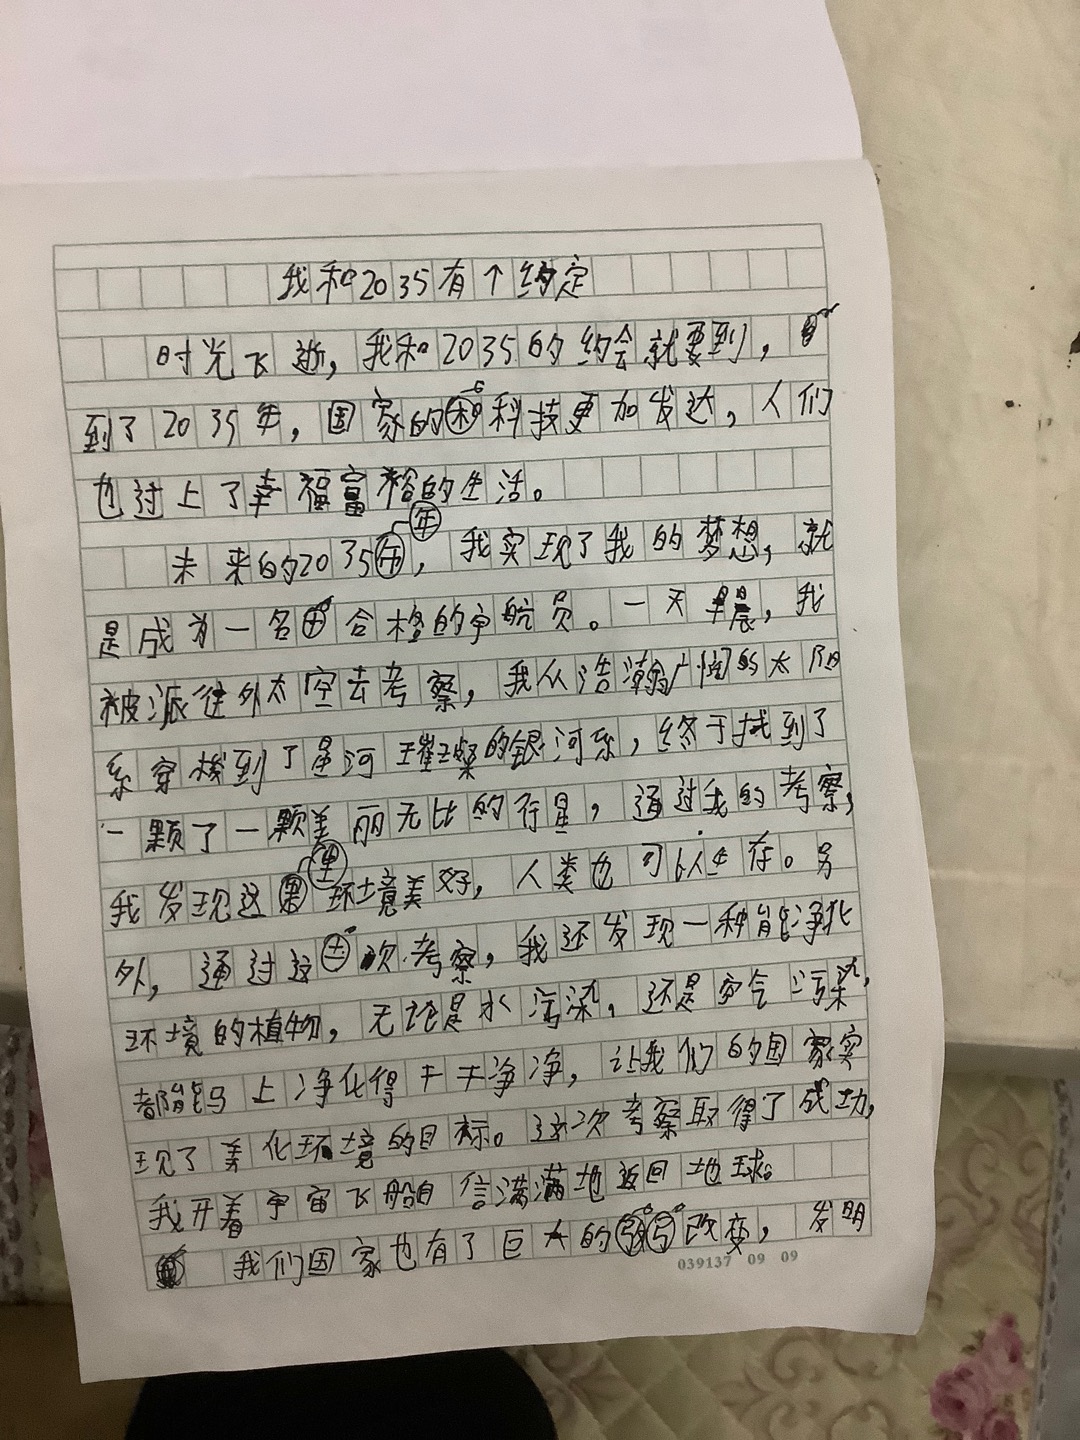 我和2035有个约定
时光飞逝，我和2035的约会就要到，
到了2035年，国家的科技更加发达，人们
也过上了幸福富裕的生活。
未来的2035年，我实现了我的梦想，就
是成为一名合格的宇航员。一天早晨，我
被派往外太空去考察，我从浩瀚广阔的太阳
系穿梭到了星河璀璨的银河系，终于找到了
一颗了一颗美丽无比的行星，通过我的考察，
我发现这里环境美好，人类也可以生存。另
外，通过这次考察，我还发现一种能净化
环境的植物，无论是水污染，还是空气污染，
都能马上净化得干干净净，让我们的国家实
现了美化环境的目标。这次考察取得了成功，
我开着宇宙飞船自信满满地返回地球。
我们国家也有了巨大的改变，发明
039137 09 09